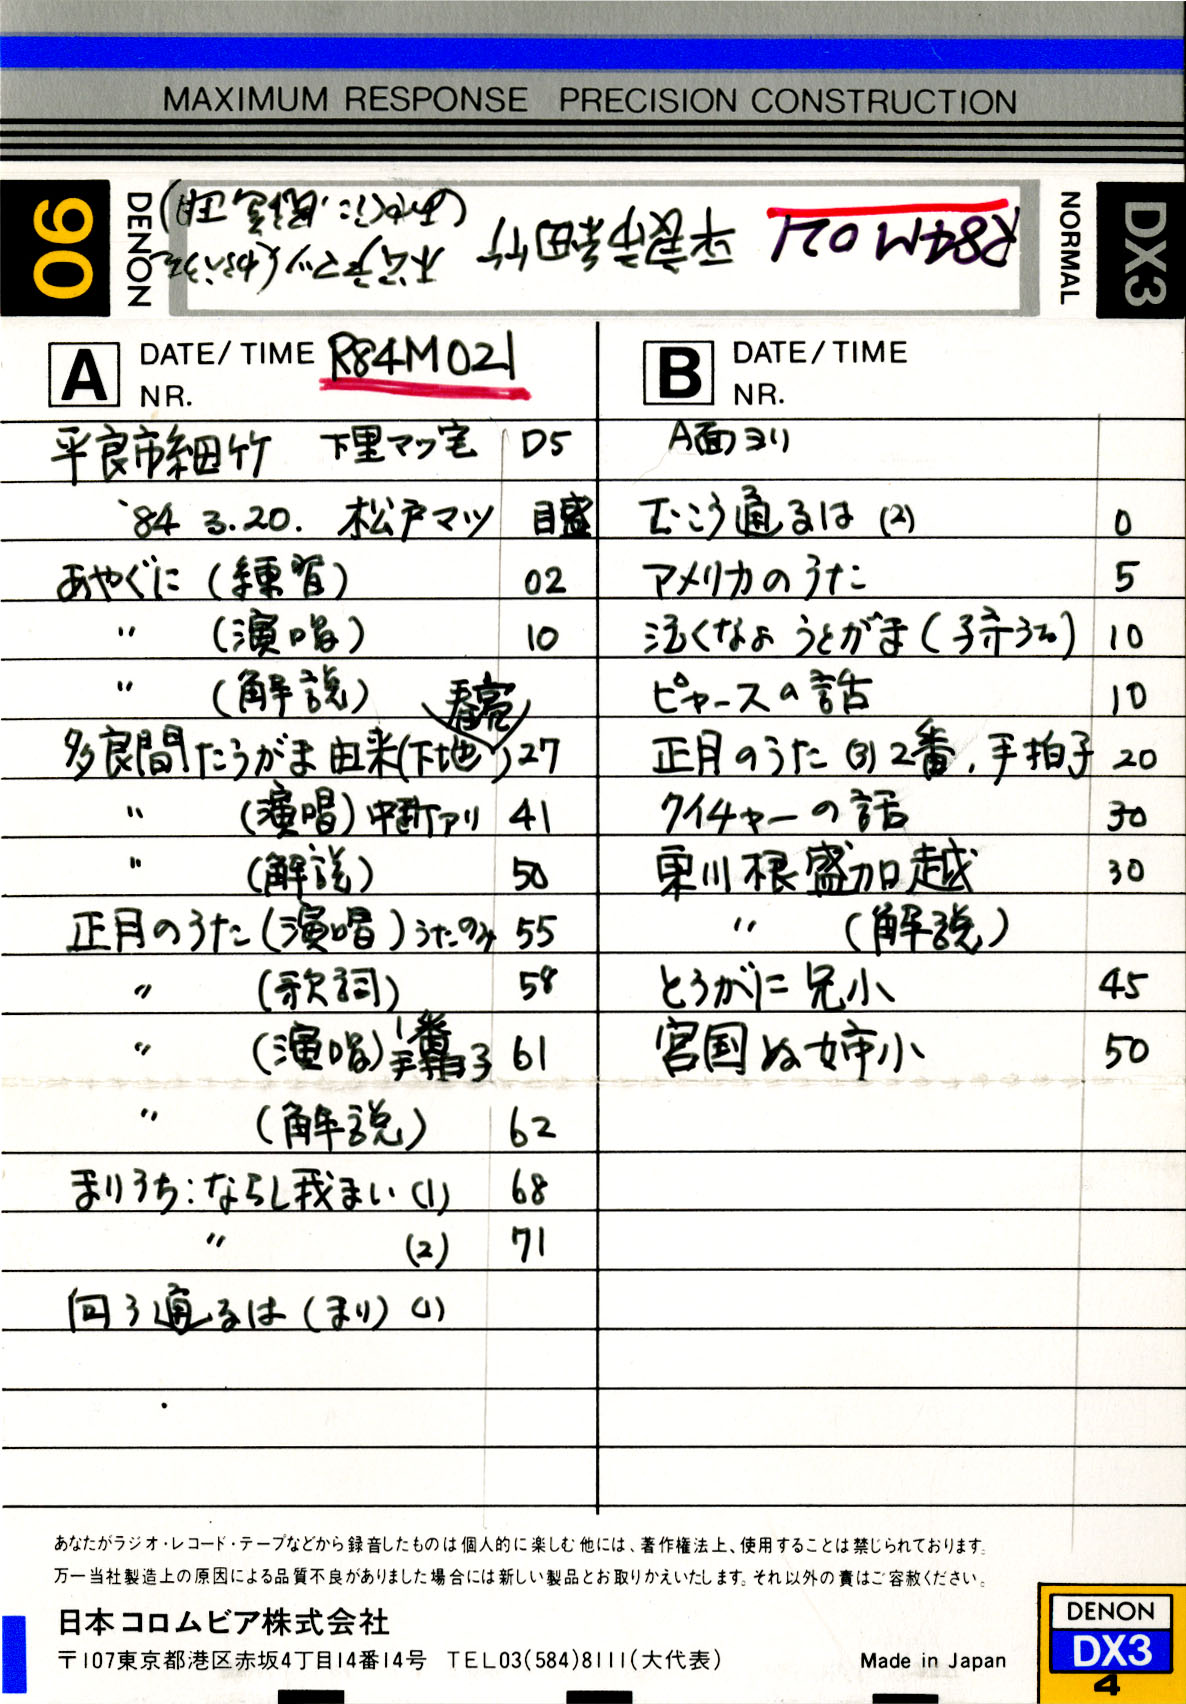 MAXIMUM RESPONSE PRECISION CONSTRUCTION
90
DENON
R84M021 平良市細竹
松戸マツ(わらべうた
あやぐに、
NORMAL
DX3
A DATE/TIME R84M021
NR.
平良市細竹 下里マツ宅 D5
'84 3.20. 松戸マツ 目盛
あやぐに(練習) 02
〃 (演唱) 10
〃 (解説)
春亮
多良間たうがま由来(下地) 27
〃 (演唱)中断アリ 41
〃 (解説) 50
正月のうた(演唱)うたのみ 55
〃 (歌詞) 58
〃 (演唱)1番手拍子 61
〃 (解説) 62
まりうち:ならし我まい(1) 68
〃 (2) 71
向う通るは(まり)(1)
B DATE/TIME
NR.
A面ヨリ
むこう通るは(2) 0
アメリカのうた 5
泣くなよ うとがま(子守うた) 10
ピャースの話 10
正月のうた(3)2番,手拍子 20
クイチャーの話 30
東川根盛加越 30
〃 (解説)
とうがに兄小 45
宮国ぬ姉小 50
あなたがラジオ・レコード・テープなどから録音したものは個人的に楽しむ他には、著作権法上、使用することは禁じられております。
万一当社製造上の原因による品質不良がありました場合には新しい製品とお取りかえいたします。それ以外の責はご容赦ください。
日本コロムビア株式会社
〒107東京都港区赤坂4丁目14番14号 TEL03(584)8111(大代表)
Made in Japan
DENON
DX3
4